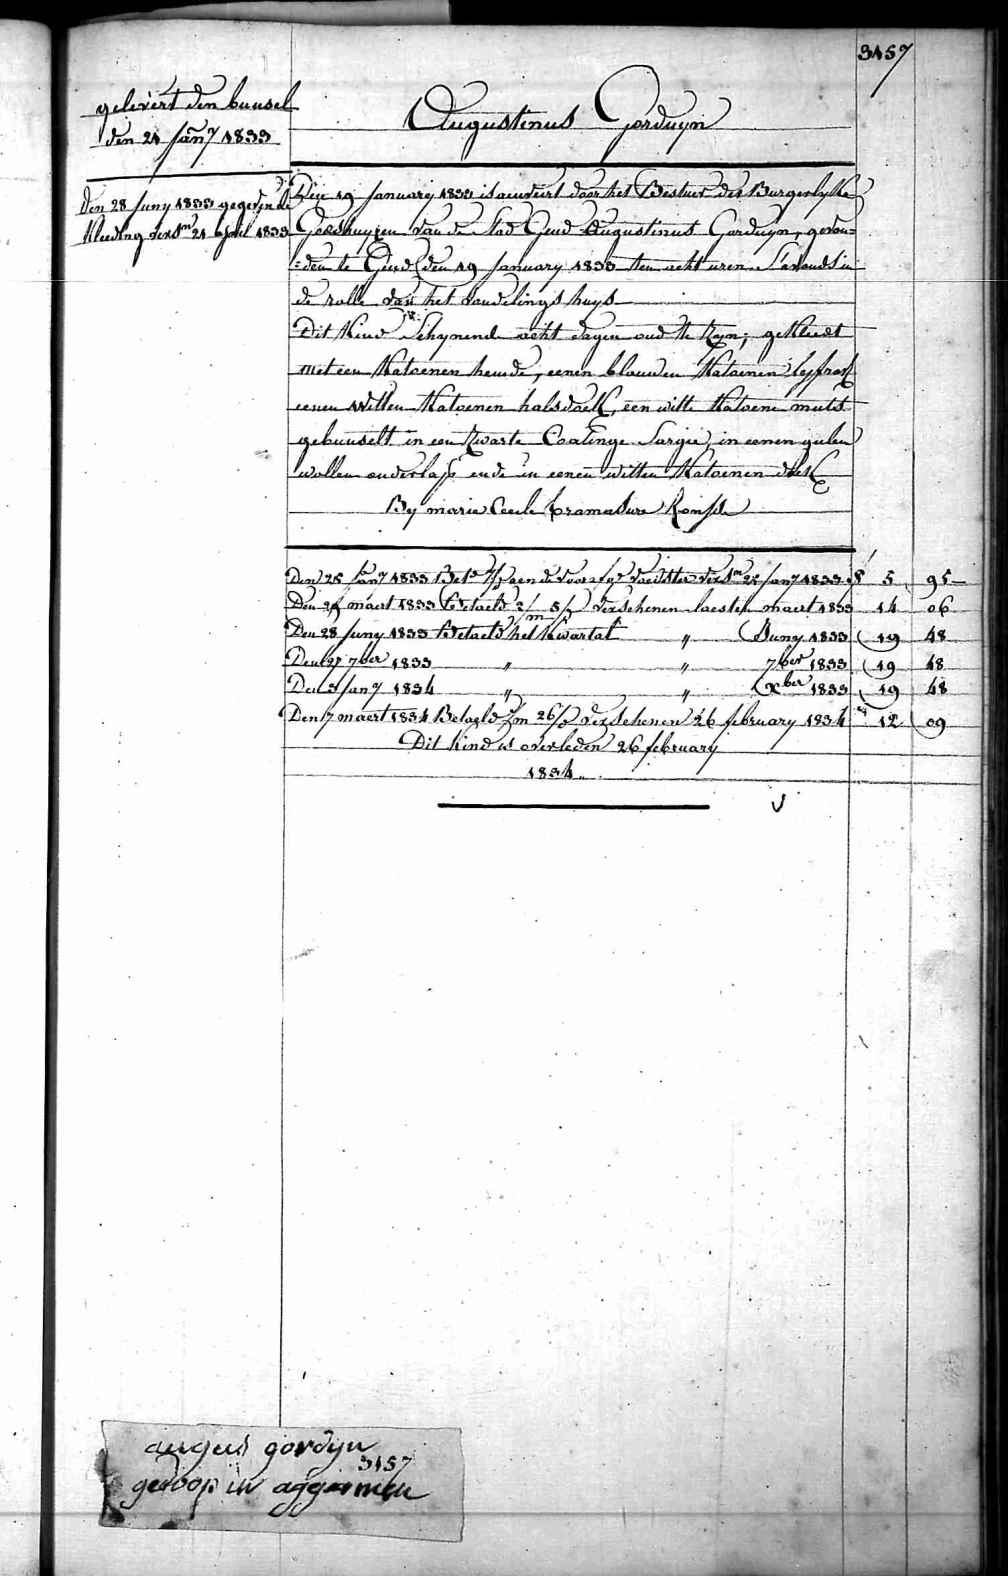 3157
gelevert den bunsel
den 21 Jan.y 1833
Augustinus Gorduyn
Den 28 Juny 1833 gegeven de
kleeding versm 21 April 1833
Den 19 January 1833 is aenveirt door het Bestuer der Burgerlyke
Godshuyzen van de Stad Gend Augustinus Gorduyn, gevon=
=den te Gend den 19 January 1833 ten acht uren s'avonds in
de rolle van het vondelings huys
Dit Kind schynende acht dagen oud te zyn; gekleedt
met een Katoenen hemde, eenen blauwen Katoenen lyfrok
eenen Witten Katoenen halsdoek, een witte Katoene muts
gebunselt in een zwarte Sargie, in eenen gelen
wollen onderlap ende in eenen witten Katoenen doek
By marie Cecile
Den 25 Jan.y 1833 Bet. aen de voorz. voedster versm 21 Jan.y 1833 5 95
Den maert 1833 Betaeld 2/m 8/ verschenen laesten maert 1833 14 06
Den 28 Juny 1833 Betaeld het Kwartal " Juny 1833 19 48
Den 27 7ber 1833 " " 7ber 1833 19 48
Den 3 Jan.y 1834 " " Xber 1833 19 48
Den 7 maert 1834 Betaeld /m 26/ verschenen 26 february 1834 12 09
Dit kind is overleden 26 february
1834.
august gordyn
3157
gedoop in